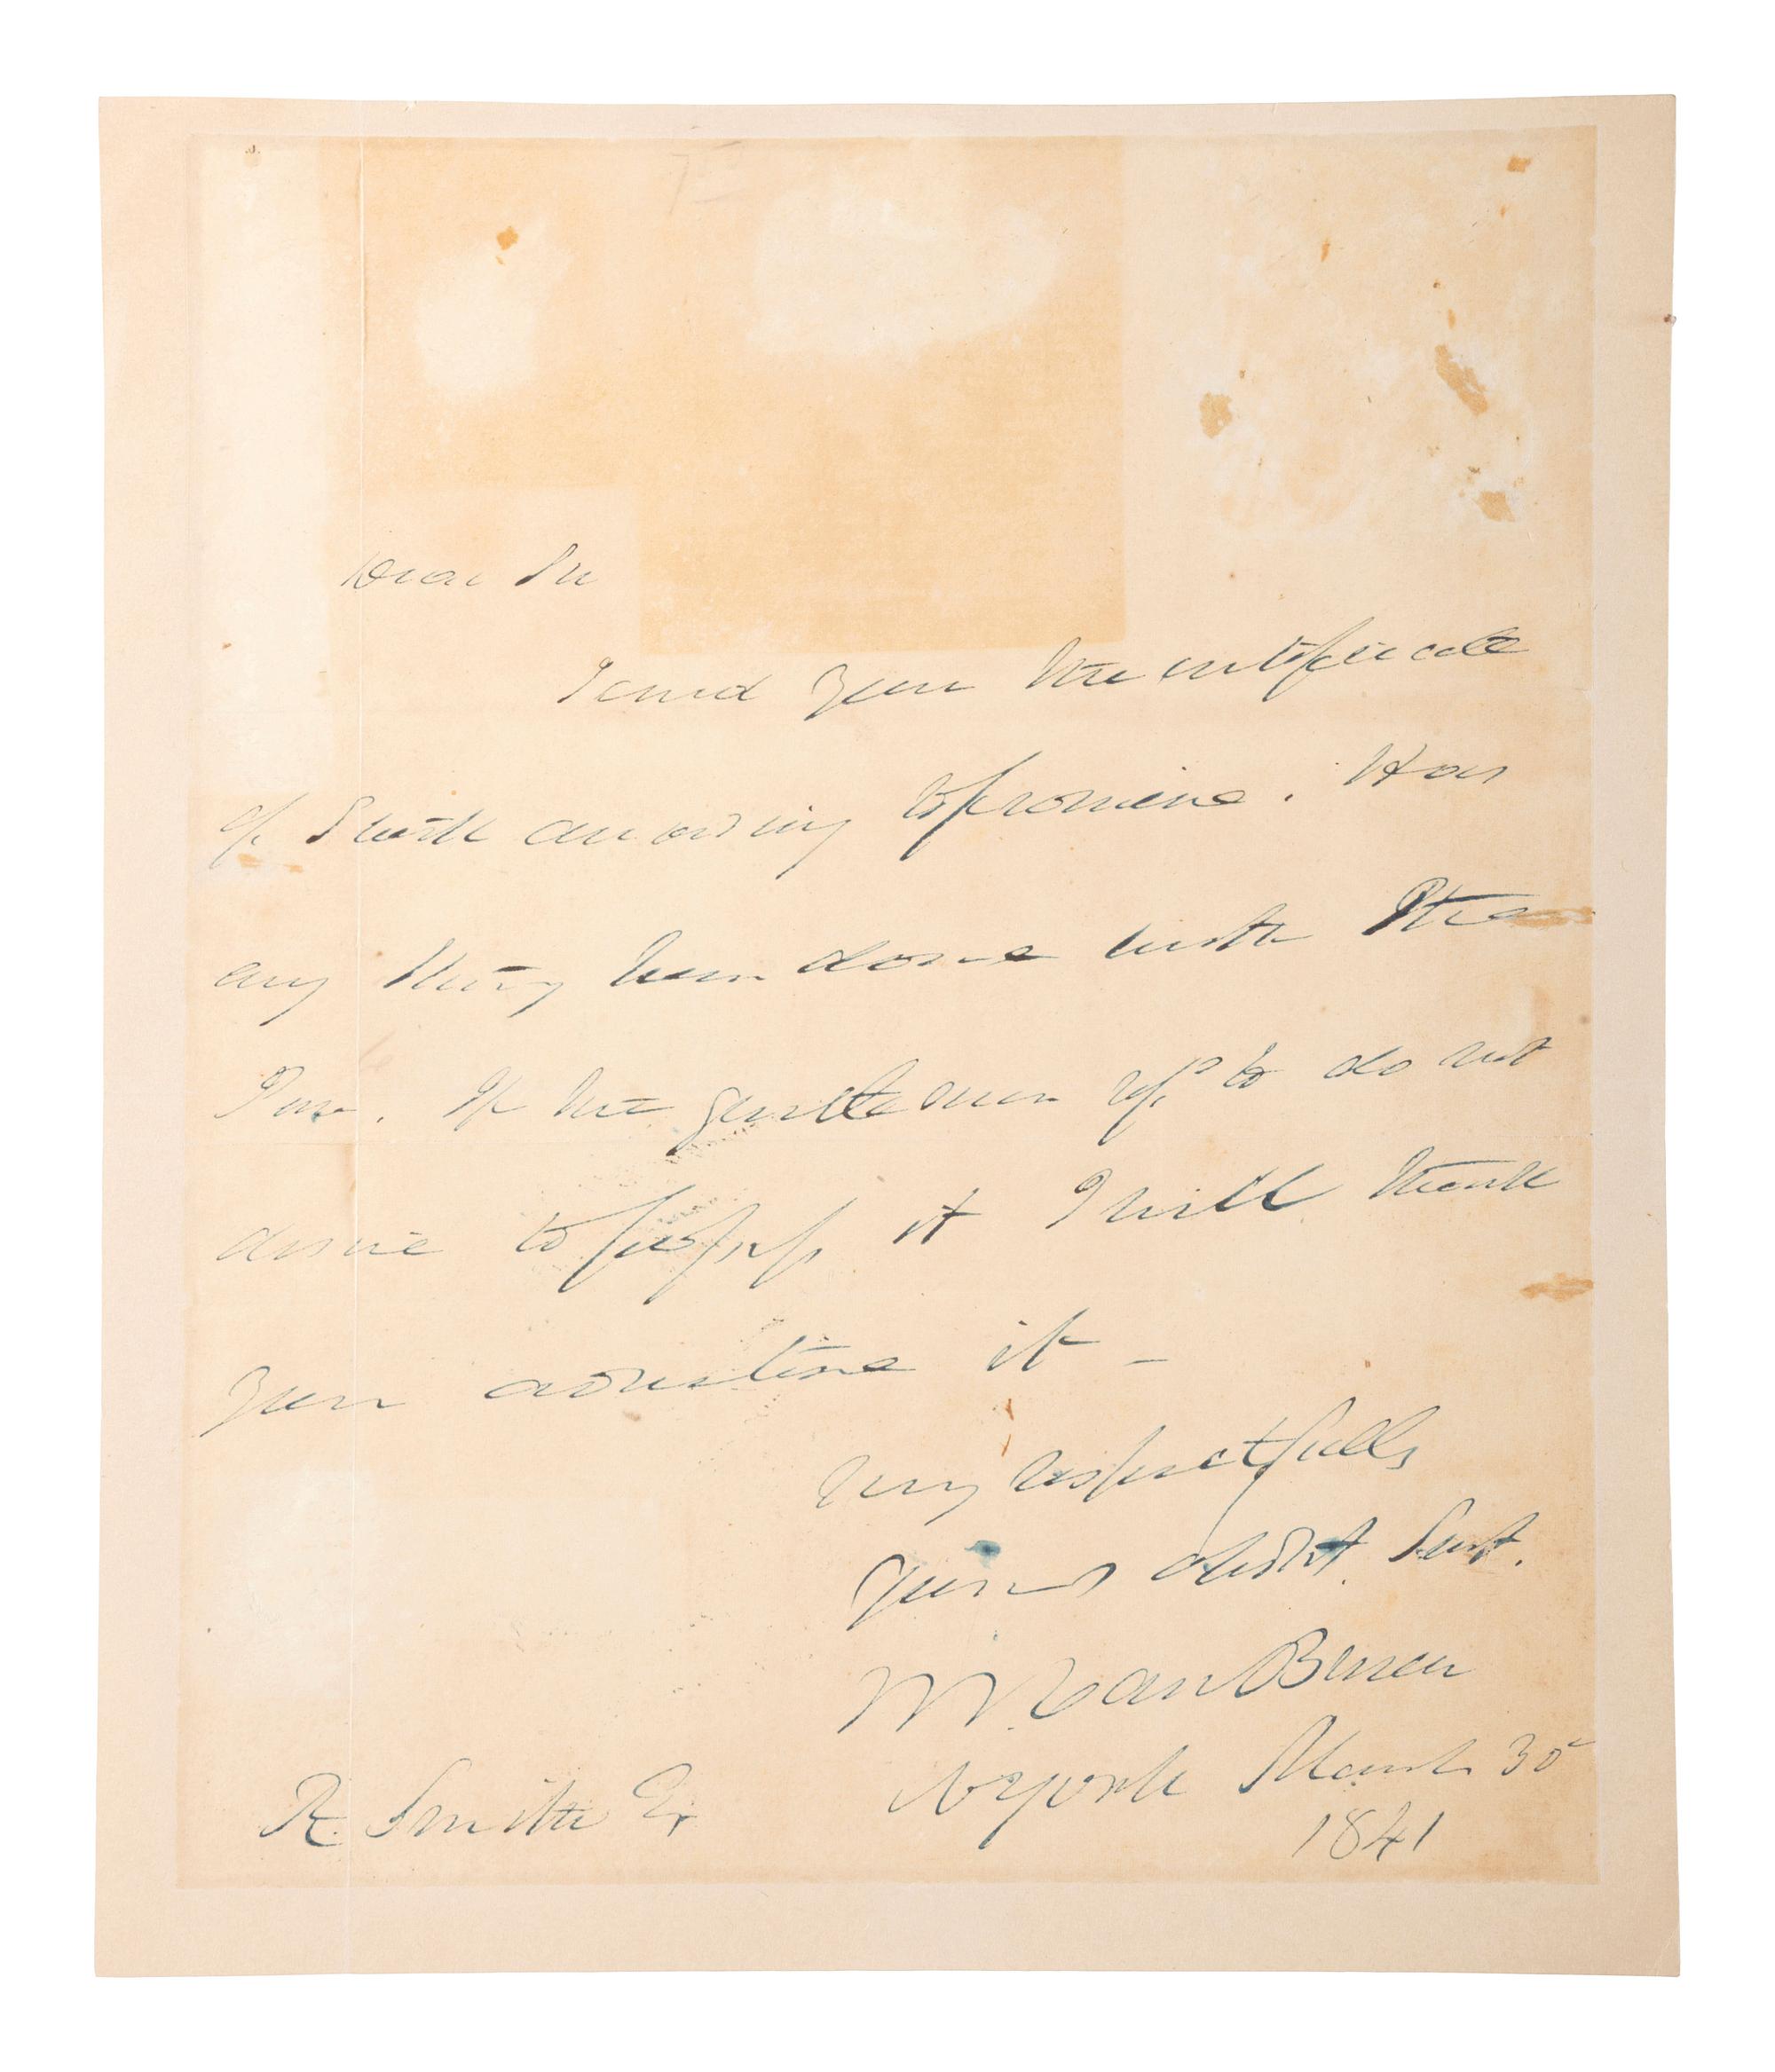 Dear Sir
I send you the certificate
of Stock according to promise. Has
any thing been done with the
If the gentlemen do not
desire to it I will thank
you it -
Very respectfully
Your obdt. Servt.
M. Van Buren
N York March 30
1841
R. Smith Er